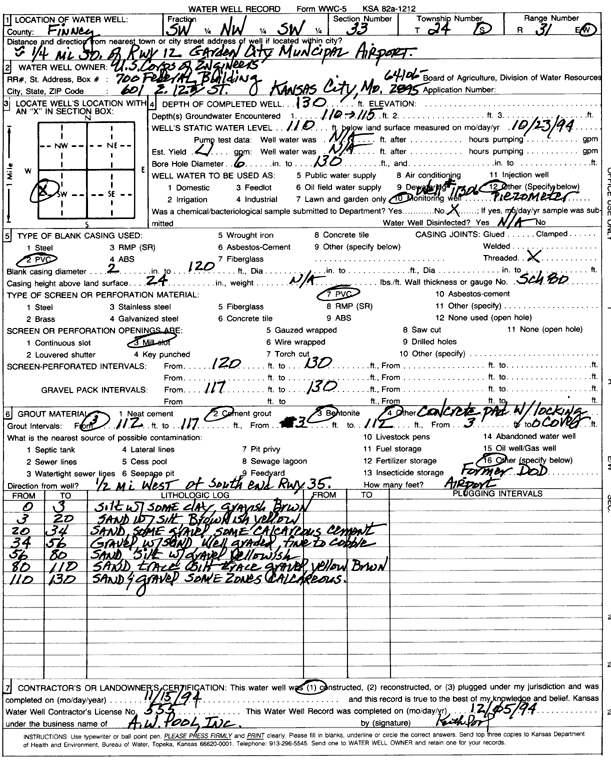 WATER WELL RECORD Form WWC-5 KSA 82a-1212
1 LOCATION OF WATER WELL: Fraction Section Number Township Number Range Number
County: Finney SW ¼ NW ¼ SW ¼ 33 T 24 S R 31 E/W
Distance and direction from nearest town or city street address of well if located within city?
≈ 1/4 mi So. of Rwy 12 Garden City Muncipal Airport.
2 WATER WELL OWNER: U.S. Corps of Engineers
RR#, St. Address, Box # : 700 Federal Building 64106- Board of Agriculture, Division of Water Resources
City, State, ZIP Code : 601 E. 12th St. Kansas City, Mo. 2895 Application Number:
3 LOCATE WELL'S LOCATION WITH AN "X" IN SECTION BOX:
N
NW NE
W E
SW SE
S
1 Mile
X
4 DEPTH OF COMPLETED WELL 130 ft. ELEVATION:
Depth(s) Groundwater Encountered 1 110 → 115 ft. 2 ft. 3 ft.
WELL'S STATIC WATER LEVEL 110 ft. below land surface measured on mo/day/yr 10/23/94
Pump test data: Well water was N/A ft. after hours pumping gpm
Est. Yield gpm: Well water was N/A ft. after hours pumping gpm
Bore Hole Diameter 6 in. to 130 ft., and in. to ft.
WELL WATER TO BE USED AS: 5 Public water supply 8 Air conditioning 11 Injection well
1 Domestic 3 Feedlot 6 Oil field water supply 9 Dewatering 12 Other (Specify below)
2 Irrigation 4 Industrial 7 Lawn and garden only 10 Monitoring well Well # 130D Piezometer
Was a chemical/bacteriological sample submitted to Department? Yes No X ; If yes, mo/day/yr sample was submitted Water Well Disinfected? Yes N/A No
5 TYPE OF BLANK CASING USED: 5 Wrought iron 8 Concrete tile CASING JOINTS: Glued Clamped
1 Steel 3 RMP (SR) 6 Asbestos-Cement 9 Other (specify below) Welded
2 PVC 4 ABS 7 Fiberglass Threaded X
Blank casing diameter 2 in. to 120 ft., Dia in. to ft., Dia in. to ft.
Casing height above land surface 24 in., weight N/A lbs./ft. Wall thickness or gauge No. Sch 80
TYPE OF SCREEN OR PERFORATION MATERIAL: 7 PVC 10 Asbestos-cement
1 Steel 3 Stainless steel 5 Fiberglass 8 RMP (SR) 11 Other (specify)
2 Brass 4 Galvanized steel 6 Concrete tile 9 ABS 12 None used (open hole)
SCREEN OR PERFORATION OPENINGS ARE: 5 Gauzed wrapped 8 Saw cut 11 None (open hole)
1 Continuous slot 3 Mill slot 6 Wire wrapped 9 Drilled holes
2 Louvered shutter 4 Key punched 7 Torch cut 10 Other (specify)
SCREEN-PERFORATED INTERVALS: From 120 ft. to 130 ft., From ft. to ft.
From ft. to ft., From ft. to ft.
GRAVEL PACK INTERVALS: From 117 ft. to 130 ft., From ft. to ft.
From ft. to ft., From ft. to ft.
6 GROUT MATERIAL: 1 Neat cement 2 Cement grout 3 Bentonite 4 Other Concrete pad w/locking cover
Grout Intervals: From 112 ft. to 117 ft., From 3 ft. to 112 ft., From 3 ft. to 0 ft.
What is the nearest source of possible contamination: 10 Livestock pens 14 Abandoned water well
1 Septic tank 4 Lateral lines 7 Pit privy 11 Fuel storage 15 Oil well/Gas well
2 Sewer lines 5 Cess pool 8 Sewage lagoon 12 Fertilizer storage 16 Other (specify below)
3 Watertight sewer lines 6 Seepage pit 9 Feedyard 13 Insecticide storage Former DOD Airport
Direction from well? 1/2 mi West of South end Rwy 35. How many feet?
FROM TO LITHOLOGIC LOG FROM TO PLUGGING INTERVALS
0 3 Silt w/ some clay, grayish Brwn
3 20 Sand w/ silt Brownish yellow
20 34 Sand some gravel some calcareous cement
34 56 Gravel w/ sand well graded, fine to cobble
56 80 Sand, silt w/ gravel yellowish
80 110 Sand trace silt trace gravel, yellow Brwn
110 130 Sand & gravel some zones calcareous.
7 CONTRACTOR'S OR LANDOWNER'S CERTIFICATION: This water well was (1) constructed, (2) reconstructed, or (3) plugged under my jurisdiction and was
completed on (mo/day/year) 11/15/94 and this record is true to the best of my knowledge and belief. Kansas
Water Well Contractor's License No. 555 This Water Well Record was completed on (mo/day/yr) 12/05/94
under the business name of A.W. Pool, Inc. by (signature) Keith Pool
INSTRUCTIONS: Use typewriter or ball point pen. PLEASE PRESS FIRMLY and PRINT clearly. Please fill in blanks, underline or circle the correct answers. Send top three copies to Kansas Department
of Health and Environment, Bureau of Water, Topeka, Kansas 66620-0001. Telephone: 913-296-5545. Send one to WATER WELL OWNER and retain one for your records.
OFFICE USE ONLY